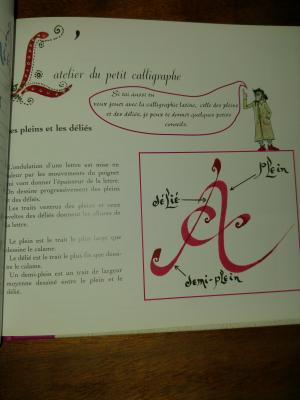 L'
atelier du petit calligraphe
Si toi aussi tu
veux jouer avec la calligraphie latine, celle des pleins
et des déliés, je peux te donner quelques petits
conseils.
es pleins et les déliés
L'ondulation d'une lettre est mise en
par les mouvements du poignet
qui vont donner l'épaisseur de la lettre.
On dessine progressivement des pleins
et des déliés.
Les traits ventrus des pleins et ceux
des déliés donnent les allures de
la lettre.
Le plein est le trait le plus large que
dessine le calame.
Le délié est le trait le plus fin que dessi-
ne le calame.
Un demi-plein est un trait de largeur
moyenne dessiné entre le plein et le
délié.
plein
délié
A
demi-plein